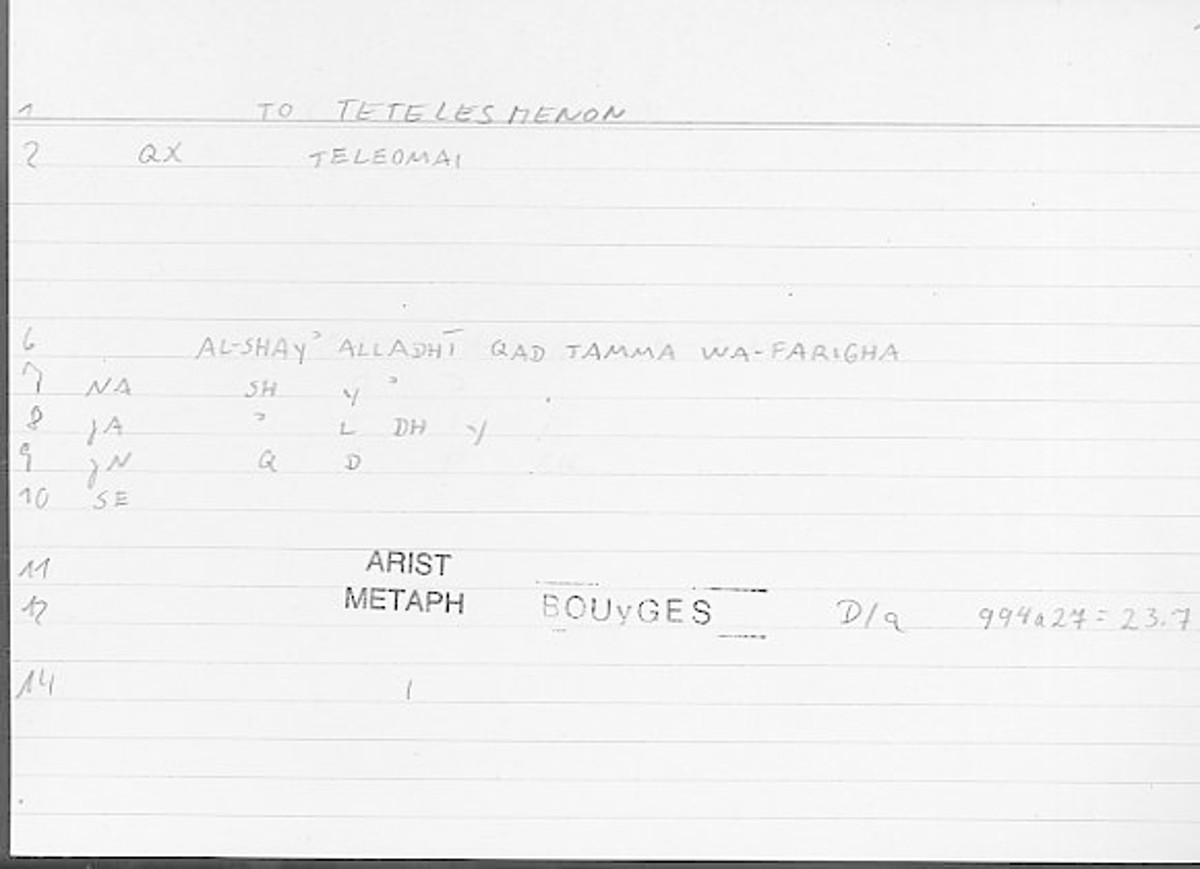 1 TO TETELESMENON
2 QX TELEOMAI
6 AL-SHAYʾ ALLADHĪ QAD TAMMA WA-FARIGHA
7 NA SH Y ʾ
8 jA ʾ L DH Y
9 jN Q D
10 SE
11 ARIST
12 METAPH BOUyGES D/a 994a27 = 23.7
14 1